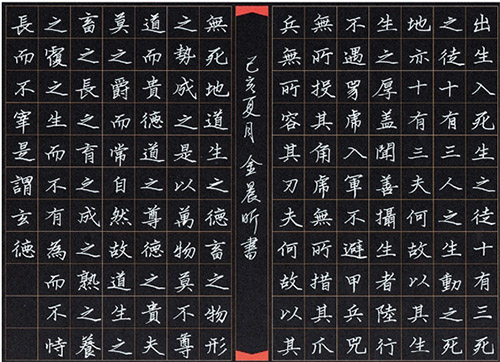 出生入死生之徒十有三死
之徒十有三人之生動之死
地亦十有三夫何故以其生
生之厚蓋聞善攝生者陸行
不遇兕虎入軍不避甲兵兕
無所投其角虎無所措其爪
兵無所容其刃夫何故以其
己亥夏月金晨昕書
無死地道生之德畜之物形
之勢成之是以萬物莫不尊
道而貴德道之尊德之貴夫
莫爵之而常自然故道生之
畜之長之育之成之熟之養
之覆之生而不有為而不恃
長而不宰是謂玄德